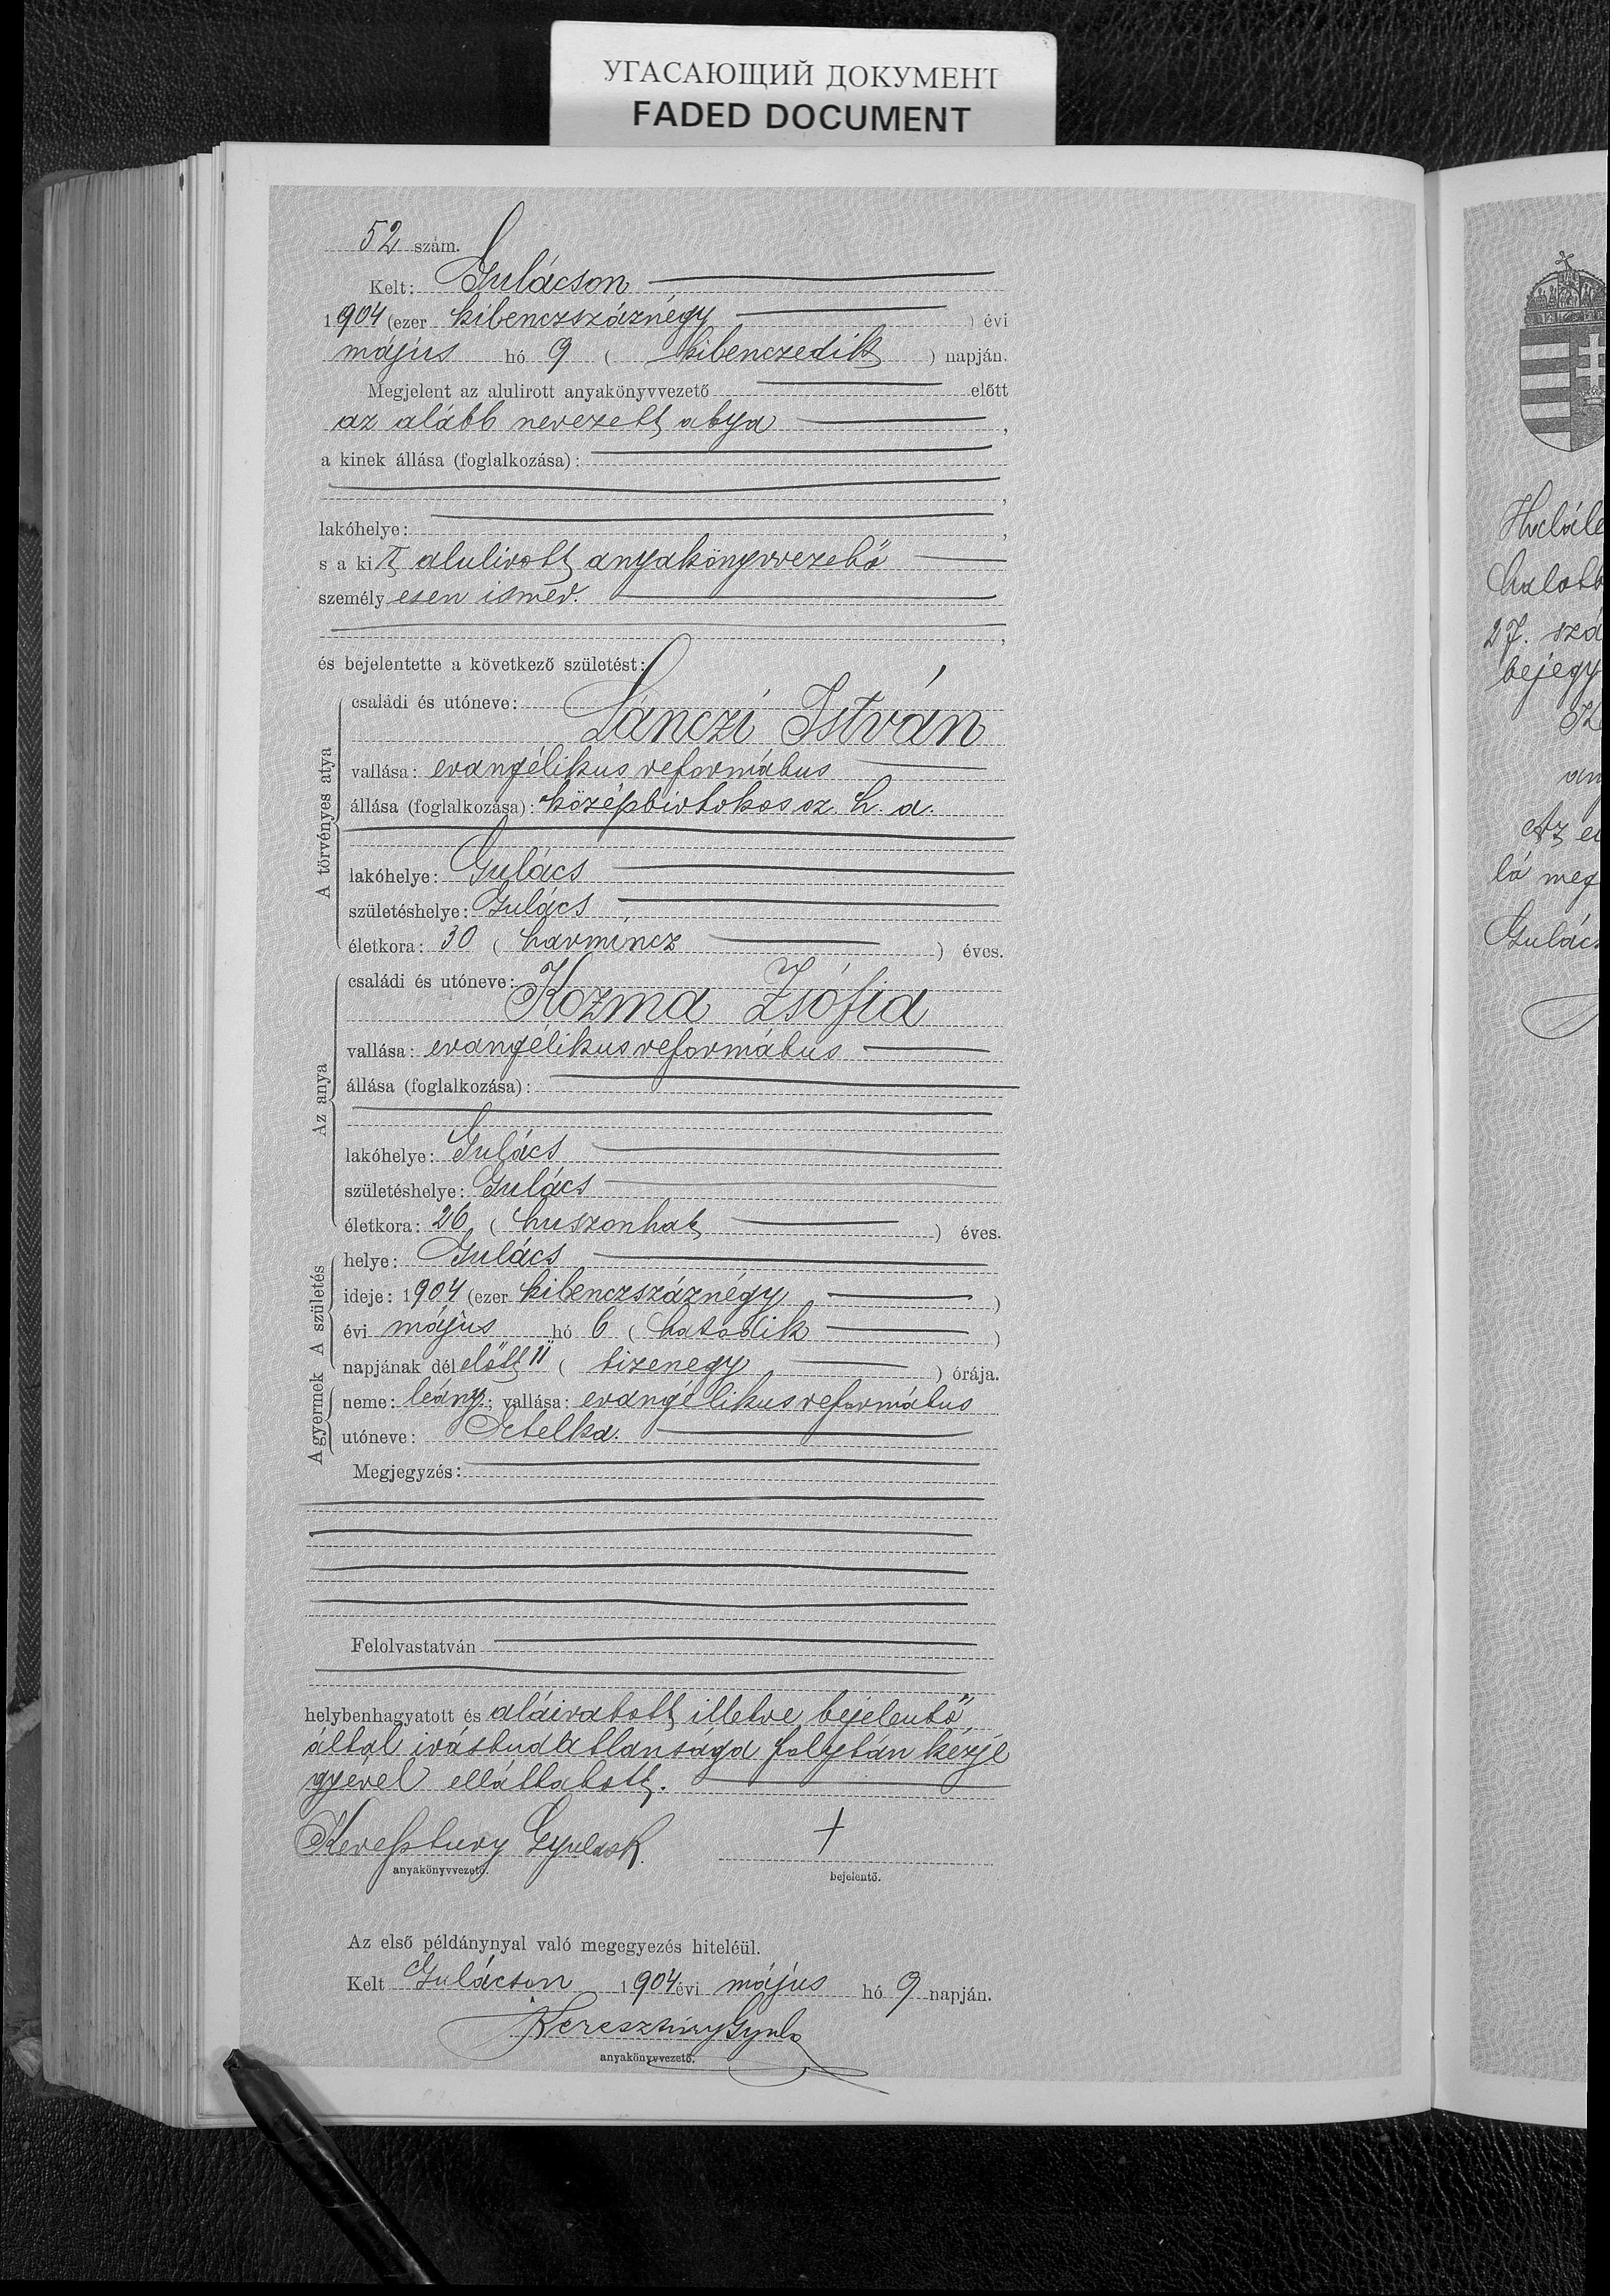 УГАСАЮЩИЙ ДОКУМЕНТ
FADED DOCUMENT
52 szám.
Kelt: Gulácson
1904 (ezer kilenczszáznégy) évi
május hó 9 (kilenczedik) napján.
Megjelent az alulirott anyakönyvvezető előtt
az alább nevezett atya,
a kinek állása (foglalkozása):
,
lakóhelye: ,
s a kit alulirott anyakönyvvezető
személyesen ismer.
,
és bejelentette a következő születést:
A törvényes atya
családi és utóneve:
Lánczi István
vallása: evangélikus református
állása (foglalkozása): középbirtokos oz. h. a.
lakóhelye: Gulács
születéshelye: Gulács
életkora: 30 (harmincz) éves.
Az anya
családi és utóneve:
Kozma Zsófia
vallása: evangélikus református
állása (foglalkozása):
lakóhelye: Gulács
születéshelye: Gulács
életkora: 26 (huszonhat) éves.
A születés
helye: Gulács
ideje: 1904 (ezer kilenczszáznégy)
évi május hó 6 (hatodik)
napjának délelőtt 11 (tizenegy) órája.
A gyermek
neme: leány; vallása: evangélikus református
utóneve: Etelka.
Megjegyzés:
Felolvastatván
helybenhagyatott és aláiratott illetve bejelentő
által irástudatlansága folytán kézje
gyével elláttatott.
Kereßtury Gyula sk. +
anyakönyvvezető. bejelentő.
Az első példánynyal való megegyezés hiteléül.
Kelt Gulácson 1904 évi május hó 9 napján.
Keresztúry Gyula
anyakönyvvezető.
27. szá
bejegy
Az e
lá meg
Gulács